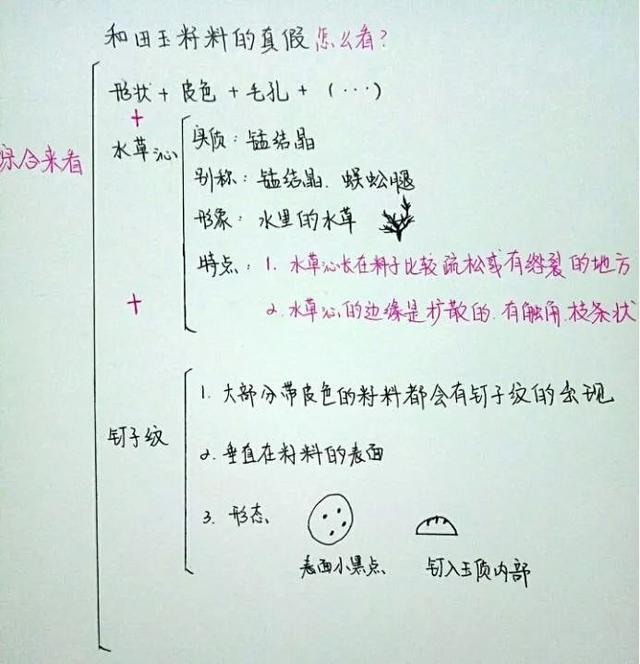 和田玉籽料的真假怎么看?
综合来看
形状 + 皮色 + 毛孔 + (···)
+
水草沁
实质: 锰结晶
别称: 锰结晶. 蜈蚣腿
形象: 水里的水草
特点: 1. 水草沁长在料子比较疏松或有绺裂的地方
2. 水草沁的边缘是扩散的. 有触角. 枝条状
+
钉子纹
1. 大部分带皮色的籽料都会有钉子纹的出现
2. 垂直在籽料的表面
3. 形态、
表面小黑点、 钉入玉质内部